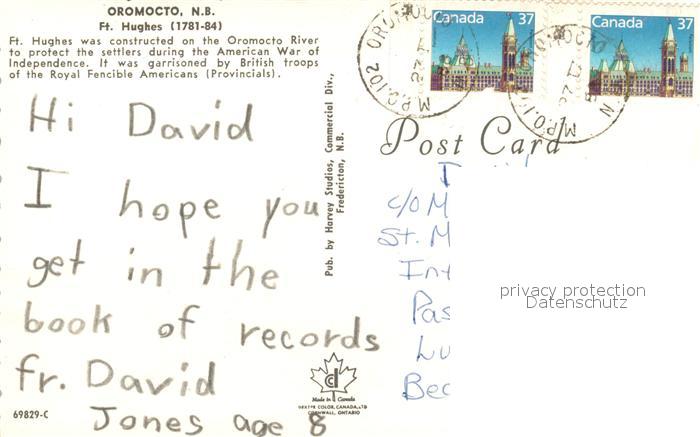 OROMOCTO, N.B.
Ft. Hughes (1781-84)
Ft. Hughes was constructed on the Oromocto River
to protect the settlers during the American War of
Independence. It was garrisoned by British troops
of the Royal Fencible Americans (Provincials).
Hi David
I hope you
get in the
book of records
fr. David
Jones age 8
69829-C
Pub. by Harvey Studios, Commercial Div.,
Fredericton, N.B.
Made in Canada
DEXTER COLOR, CANADA, LTD
CORNWALL, ONTARIO
Canada 37
Canada 37
M.P.O. 102 OROMOCTO
OMOCTO N B
M.P.O. 10
Post Card
c/o M
St. M
Int
Pas
Lu
Bec
privacy protection
Datenschutz